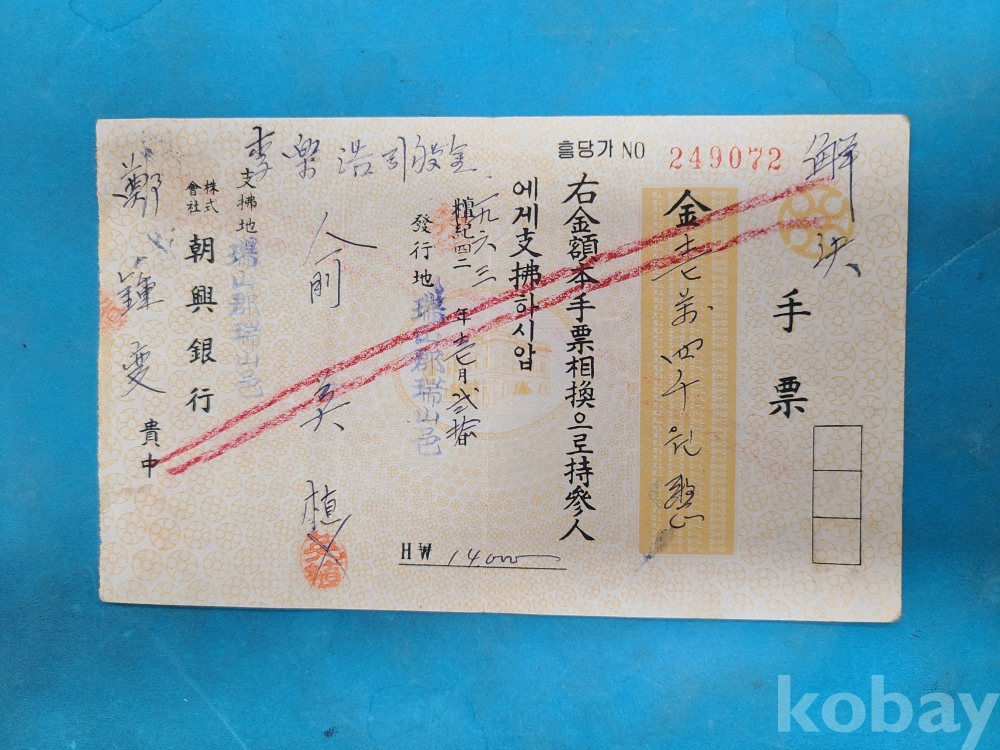 解決
手票
흥당가 NO 249072
金壱萬四千원整
右金額本手票相換으로持參人
에게支拂하시압
檀紀四二 年 月 拾
一九六三
發行地 瑞山郡瑞山邑
HW 14000
李
支拂地 瑞山郡瑞山邑
株式會社 朝興銀行 貴中
kobay